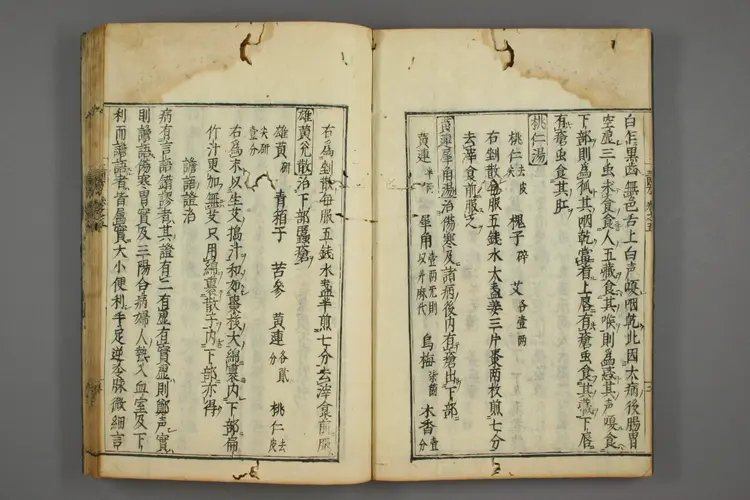 白怎黒齒無色舌上白声嗄咽乾此因大病後腸胃
空虚三虫求食食人五藏食其喉則為惑其声嗄食
下部則為狐其咽乾當看上唇有瘡虫食其藏下唇
有瘡虫食其肛
桃仁湯
桃仁 去皮尖 槐子 碎 艾 各壹兩
右剉散每服五錢水大盞姜三片棗兩枚煎七分
去滓食前服之
黄連犀角湯治傷寒及諸病後内有瘡出下部
黄連 半兩 犀角 壹兩无則以升麻代 烏梅 柒箇 木香 壹分
右為剉散每服五錢水盞半煎七分去滓食前服
雄黄兊散治下部䘌瘡
雄黄 研 青葙子 苦參 黄連 各貳分 桃仁 去皮
尖研壹分
右為末以生艾搗汁和如棗核大綿裹内下部扁
竹汁更加無艾只用綿裹散子内下部亦得
譫語證治
病有言語錯謬者其證有二有虚有實虚則鄭声實
則譫語傷寒胃實及三陽合病婦人熱入血室及下
利而譫語者皆属實大小便利手足逆冷脉微細言